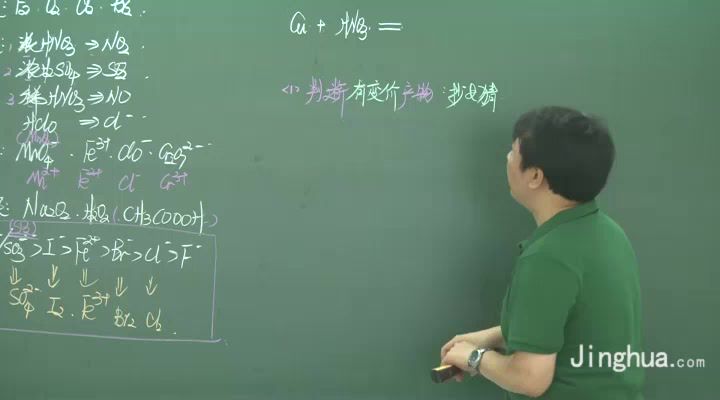 F₂ . O₂ . Cl₂ . Br₂ .
1 浓HNO₃ ⇒ NO₂ .
2 浓H₂SO₄ ⇒ SO₂ .
3 稀HNO₃ ⇒ NO
HClO ⇒ Cl⁻
MnO₄⁻ . Fe³⁺ . ClO⁻ . Cr₂O₇²⁻
Mn²⁺ Fe²⁺ Cl⁻ Cr³⁺
Na₂O₂ . H₂O₂ (CH₃COOOH)
SO₃²⁻ > I⁻ > Fe²⁺ > Br⁻ > Cl⁻ > F⁻
⇓ ⇓ ⇓ ⇓ ⇓
SO₄²⁻ I₂ . Fe³⁺ Br₂ Cl₂ .
Cu + HNO₃ =
<1> 判断有变价产物:抄或猜
Jinghua.com